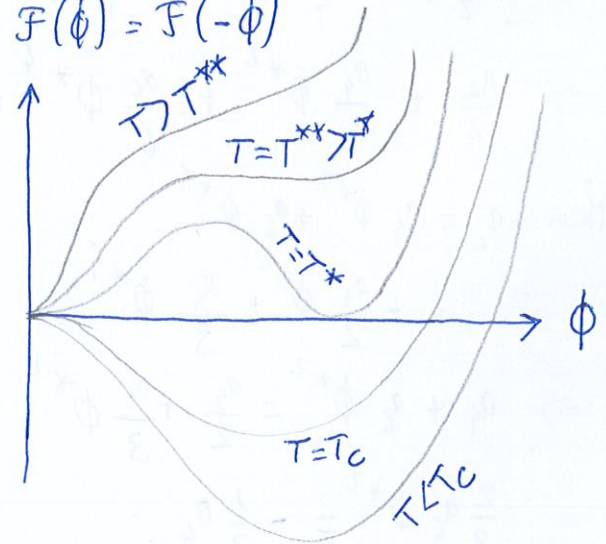 F(ϕ) = F(-ϕ)
T > T**
T = T** > T*
T = T*
ϕ
T = Tc
T < Tc